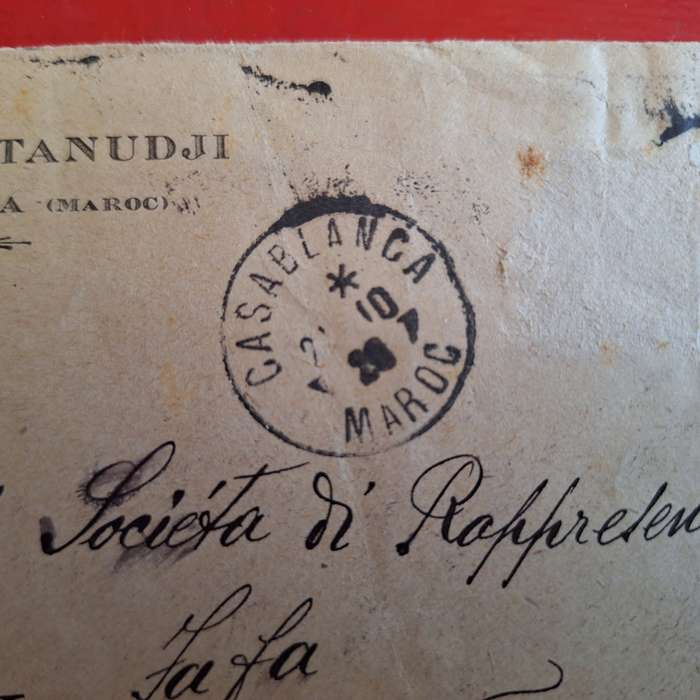 TANUDJI
A (MAROC)
CASABLANCA
* 10
2
28
MAROC
Societá di Rappresen
Jafa